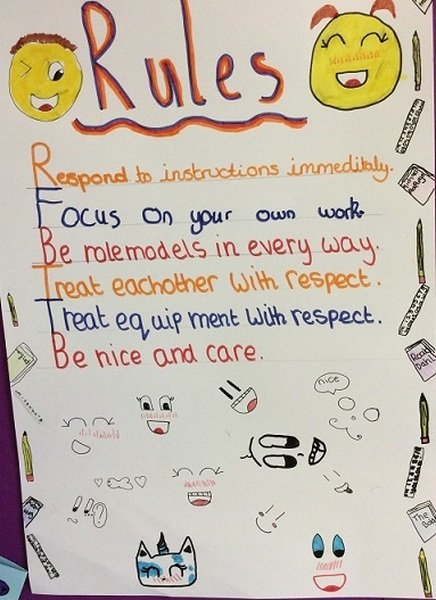 Rules
Respond to instructions immeditaly.
Focus on your own work
Be rolemodels in every way.
Treat eachother with respect.
Treat equipment with respect.
Be nice and care.
nice
Roald Dahl
The